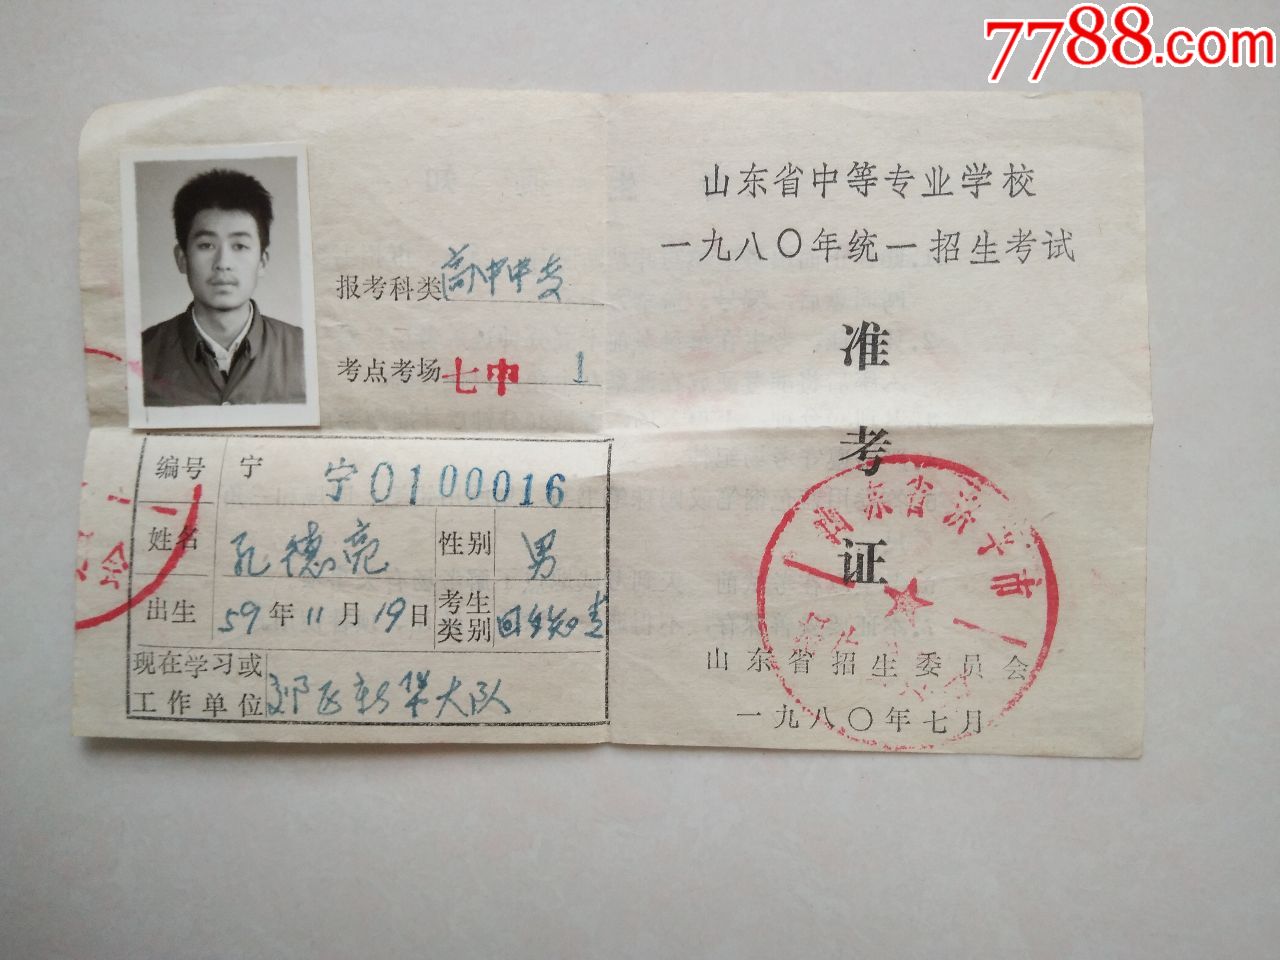 7788.com
山东省中等专业学校
一九八〇年统一招生考试
准
考
证
山东省招生委员会
一九八〇年七月
山东省济宁市
报考科类 高中中专
考点考场 七中 1
编号 宁 宁0100016
姓名 孔德亮 性别 男
出生 59年11月19日 考生类别 回乡知青
现在学习或
工作单位 大队